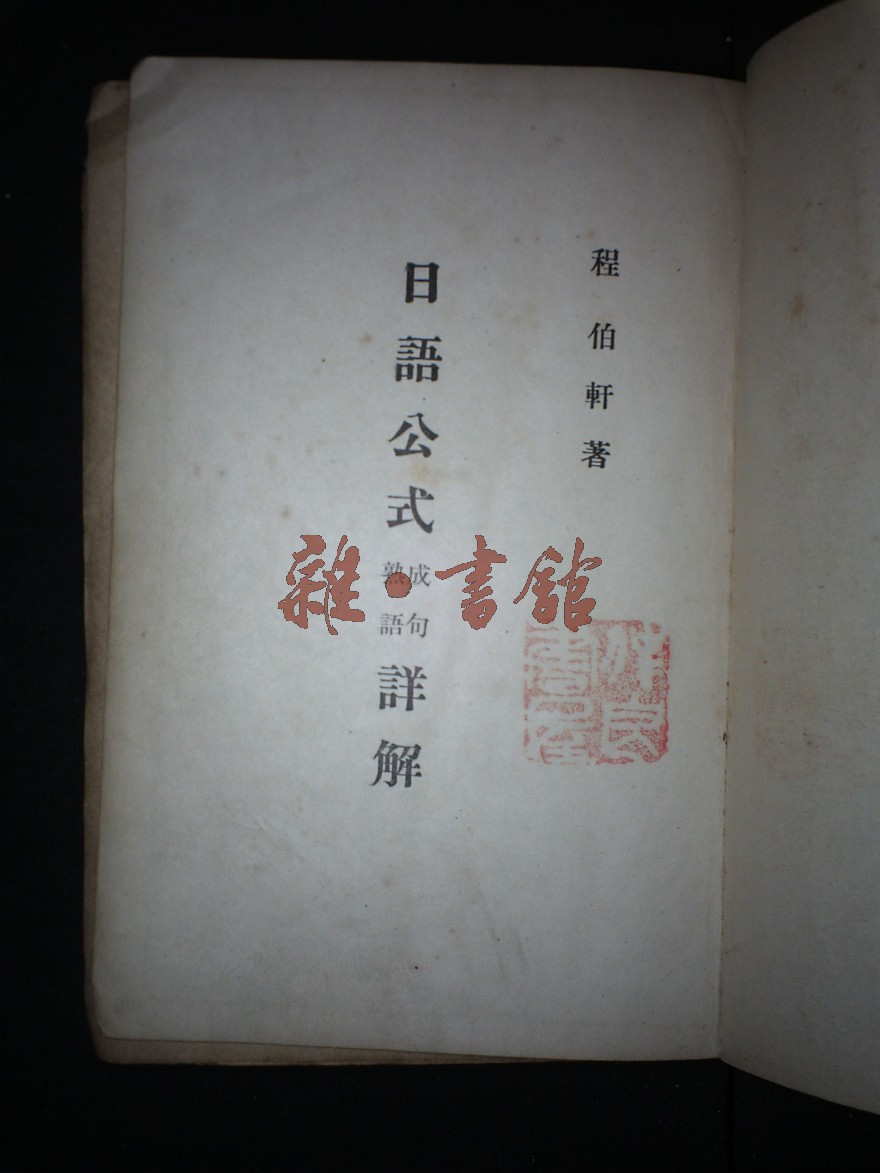 程伯軒著
日語公式成句熟語詳解
雜·書館